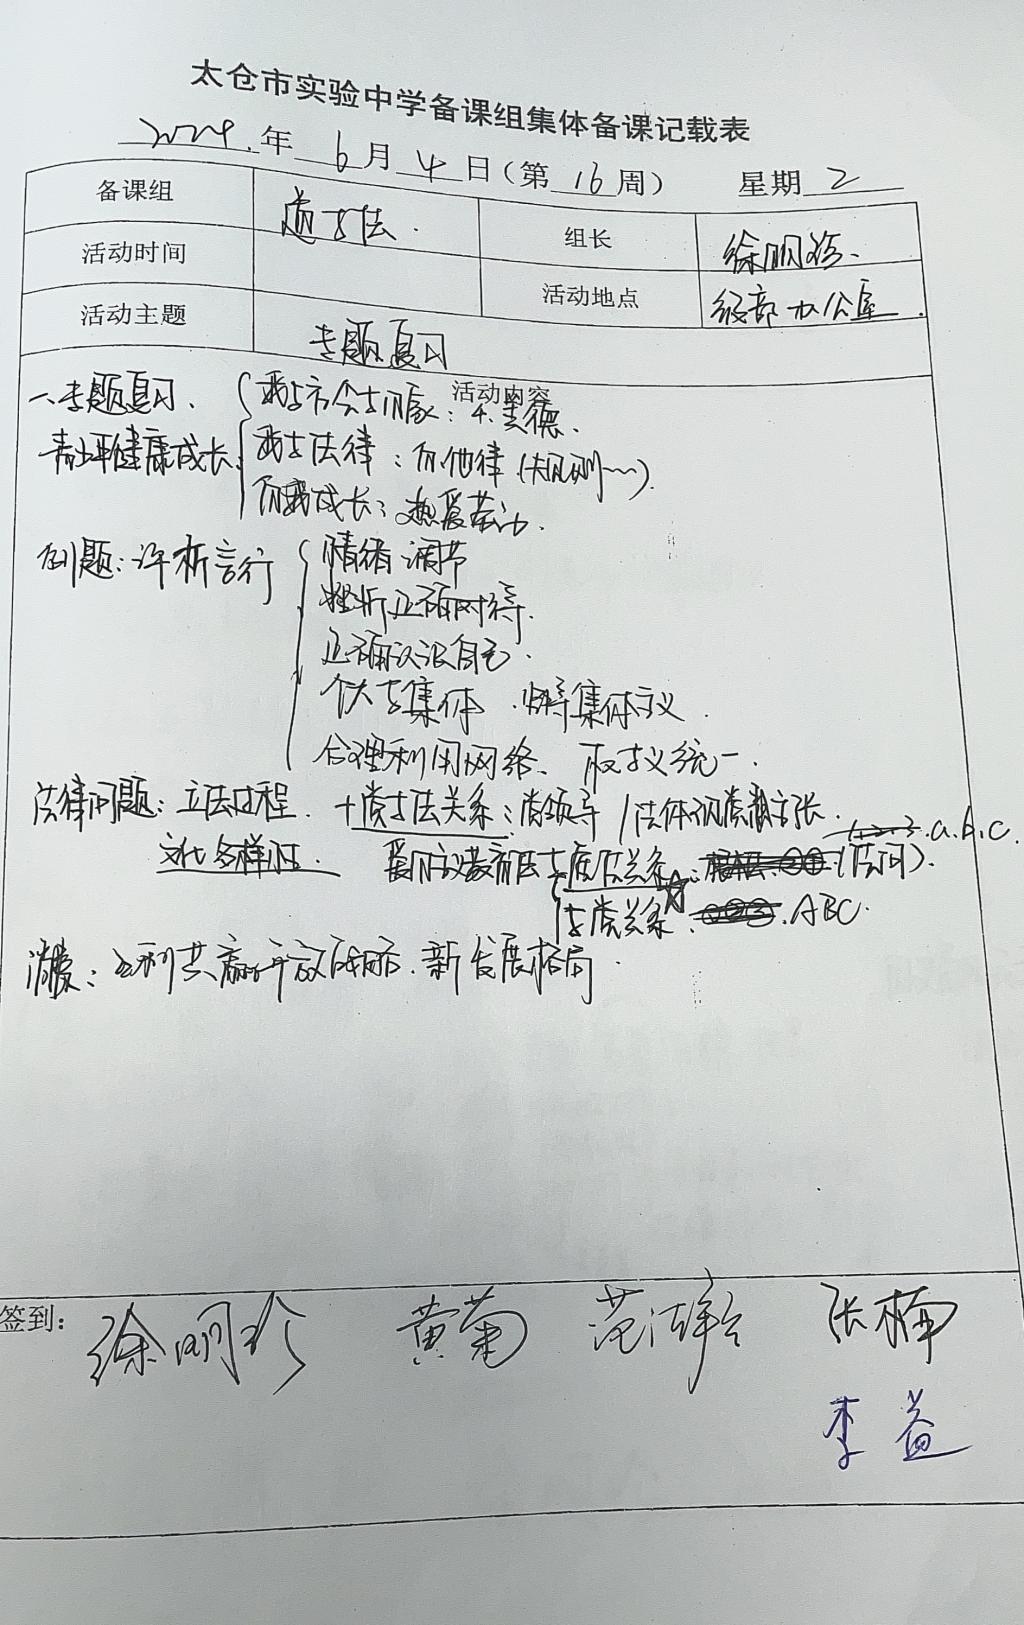 太仓市实验中学备课组集体备课记载表
2024.年 6 月 4 日（第 16 周） 星期 2
备课组 道与法. 组长 徐明珍.
活动时间 活动地点 级部办公室.
活动主题 专题复习
活动内容
一、专题复习、 我与 : 4.美德、
青少年健康成长 我与法律：有他律（规则……）.
自我成长：热爱劳动.
例题：评析言行 情绪调节
挫折正确对待.
正确认识自己.
个人与集体 集体主义.
合理利用网络、 权与义统一.
法律问题：立法过程. 十党与法关系：党领导/法体现党 主张. a.b.c.
文化多样性 爱国主义教育法 与 法关系☆: (法问).
与党关系: ABC.
共赢开放战略.新发展格局.
签到：
徐明珍 黄菊 范 张楠
李益